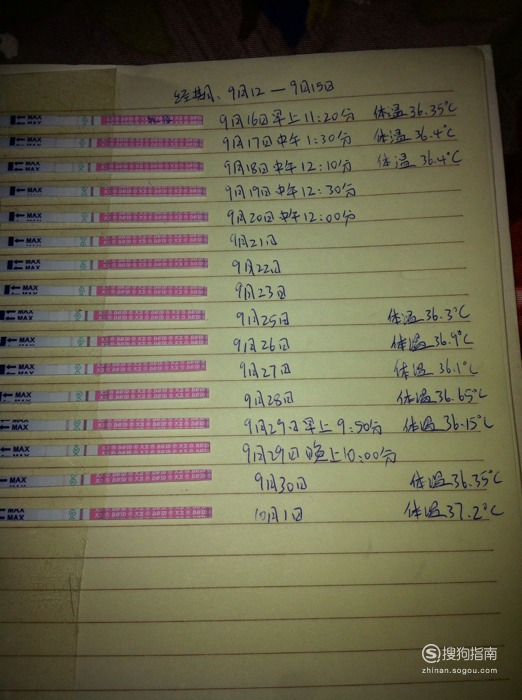 经期、9月12—9月15日
MAX 9月16日早上11:20分 体温36.35℃
MAX 9月17日中午1:30分 体温36.4℃
MAX 9月18日中午12:10分 体温36.4℃
MAX 9月19日中午12:30分
MAX 9月20日中午12:00分
MAX 9月21日
MAX 9月22日
MAX 9月23日
MAX 9月25日 体温36.3℃
MAX 9月26日 体温36.9℃
MAX 9月27日 体温36.1℃
MAX 9月28日 体温36.65℃
MAX 9月29日早上9:50分 体温36.15℃
MAX 9月29日晚上10:00分
MAX 9月30日 体温36.35℃
MAX 10月1日 体温37.2℃
搜狗指南
zhinan.sogou.com